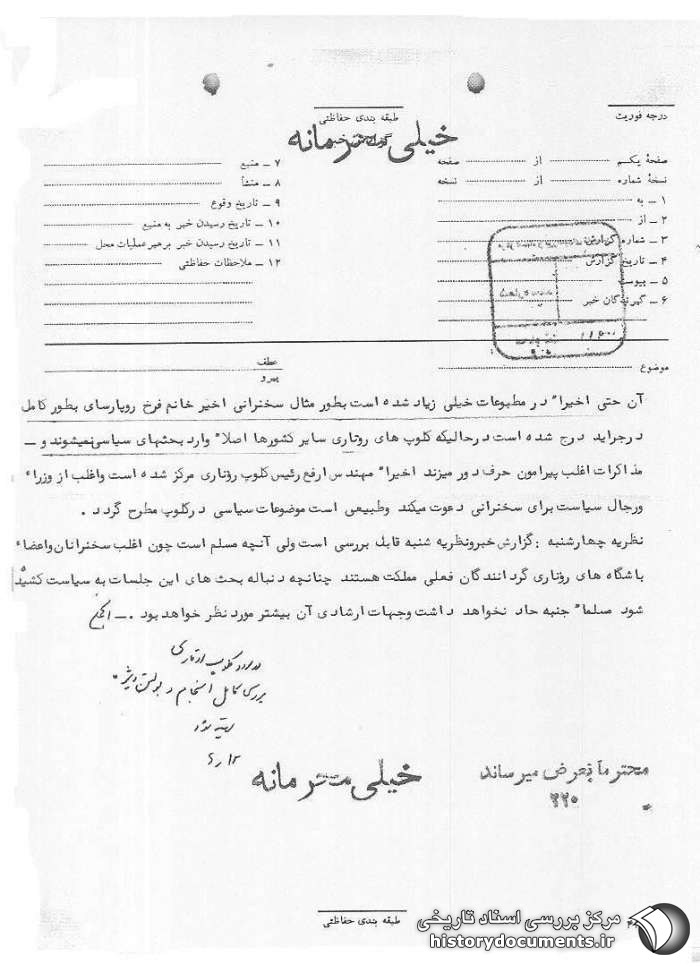 درجه فوریت
طبقه بندی حفاظتی
خیلی محرمانه
صفحهٔ یکم از صفحه
نسخهٔ شماره از نسخه
۱ ـ به
۲ ـ از
۳ ـ شماره گزارش
۴ ـ تاریخ گزارش
۵ ـ پیوست
۶ ـ گیرندگان خبر
۷ ـ منبع
۸ ـ منشأ
۹ ـ تاریخ وقوع
۱۰ ـ تاریخ رسیدن خبر به منبع
۱۱ ـ تاریخ رسیدن خبر برهبر عملیات محل
۱۲ ـ ملاحظات حفاظتی
موضوع
عطف
پیرو
آن حتی اخیراً در مطبوعات خیلی زیاد شده است بطور مثال سخنرانی اخیر خانم فرخ روپارسای بطور کامل
در جراید درج شده است درحالیکه کلوپ های روتاری سایر کشورها اصلاً وارد بحثهای سیاسی نمیشوند و ـ
مذاکرات اغلب پیرامون حرف دور میزند اخیراً مهندس ارفع رئیس کلوپ روتاری مرکز شده است واغلب از وزراء
ورجال سیاست برای سخنرانی دعوت میکند وطبیعی است موضوعات سیاسی درکلوپ مطرح گردد .
نظریه چهارشنبه : گزارش خبرونظریه شنبه قابل بررسی است ولی آنچه مسلم است چون اغلب سخنرانان واعضاء
باشگاه های روتاری گردانندگان فعلی مملکت هستند چنانچه دنباله بحث های این جلسات به سیاست کشیده
شود مسلماً جنبه حاد نخواهد داشت وجهات ارشادی آن بیشتر مورد نظر خواهد بود .ـ
بررسی کامل انجام و بولتن ویژه
تهیه شود
محترماً بعرض میرساند
۳۲۰
خیلی محرمانه
طبقه بندی حفاظتی
مرکز بررسی اسناد تاریخی
historydocuments.ir